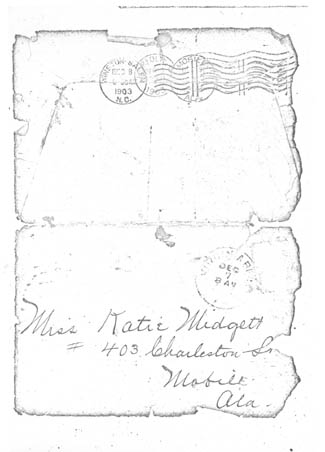 DEC
1903
N.C.
DEC
7
8 AM
Miss Katie Midgett
# 403 Charleston St
Mobile
Ala.